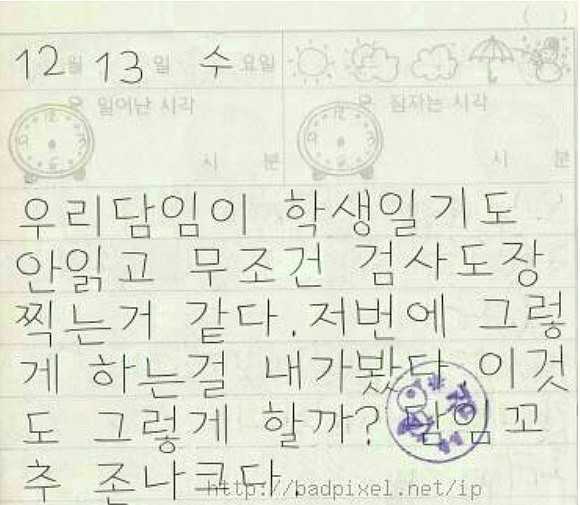 ( )
12월 13일 수요일
일어난 시각 잠자는 시각
시 분 시 분
우리담임이 학생일기도
안읽고 무조건 검사도장
찍는거 같다. 저번에 그렇
게 하는걸 내가봤다. 이것
도 그렇게 할까? 담임꼬
추 존나크다.
http://badpixel.net/ip